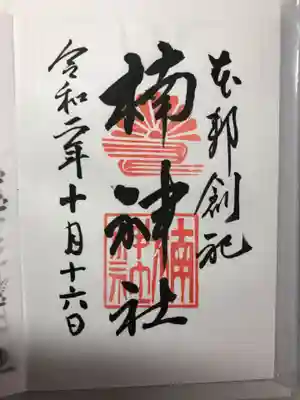 本邦創祀
楠神社
楠神社
令和二年十月十六日